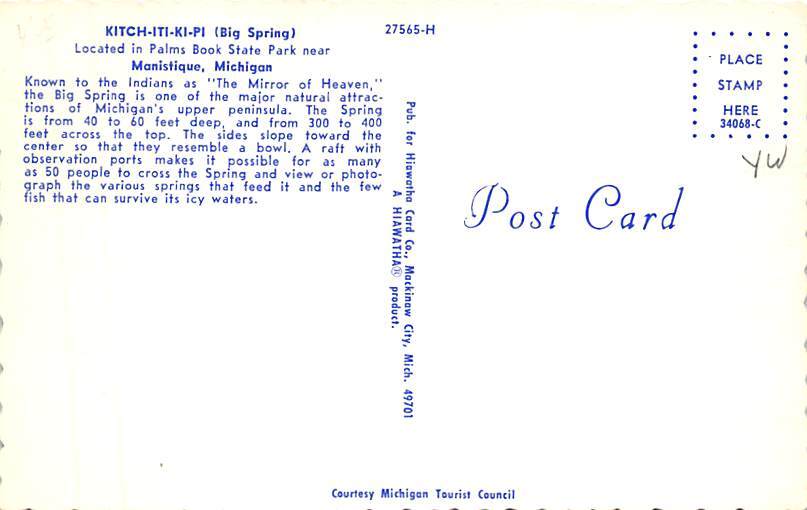 KITCH-ITI-KI-PI (Big Spring)
Located in Palms Book State Park near
Manistique, Michigan
Known to the Indians as "The Mirror of Heaven,"
the Big Spring is one of the major natural attrac-
tions of Michigan's upper peninsula. The Spring
is from 40 to 60 feet deep, and from 300 to 400
feet across the top. The sides slope toward the
center so that they resemble a bowl. A raft with
observation ports makes it possible for as many
as 50 people to cross the Spring and view or photo-
graph the various springs that feed it and the few
fish that can survive its icy waters.
27565-H
Pub. for Hiawatha Card Co., Mackinaw City, Mich. 49701
A HIAWATHA® product.
PLACE
STAMP
HERE
34068-C
YW
Post Card
Courtesy Michigan Tourist Council